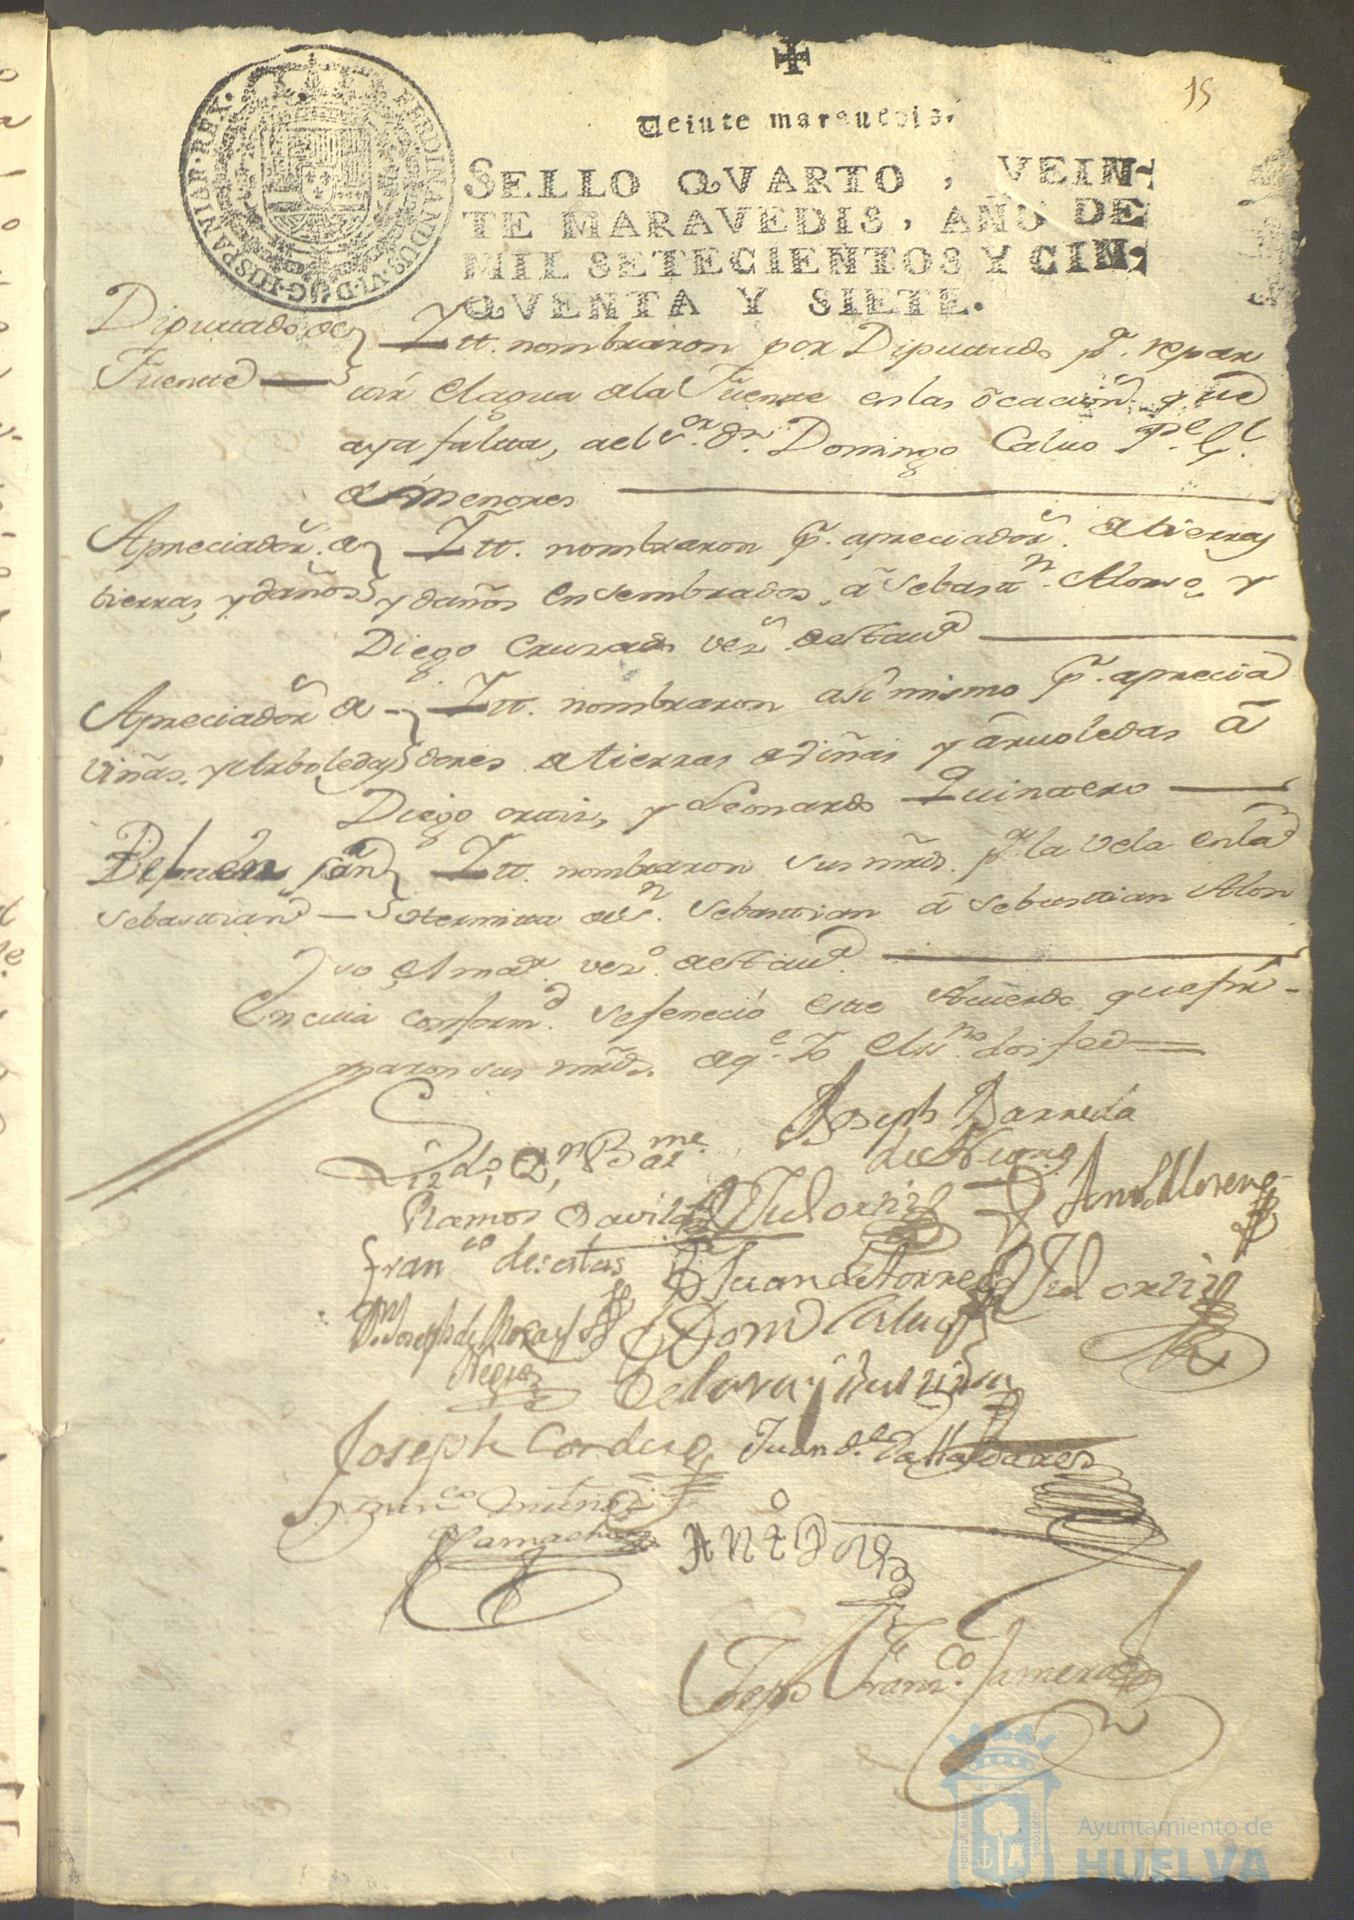 15
Veinte maravedis.
SELLO QVARTO, VEIN-
TE MARAVEDIS, AÑO DE
MIL SETECIENTOS Y CIN-
QVENTA Y SIETE.
FERDINANDUS·VI·D·G·HISPANIAR·REX·
Diputado de
Fuente
Ytt. nombraron por Diputado pª. repar
tir el agua de la Fuente en las ocacion.s que
aya falta, a el s.or dn. Domingo Calvo Pe. Gl.
de Menores
Apreciador.s de
tierras, y daños
Ytt. nombraron pr. apreciador.s de tierras
y daños en sembrados, â Sebastn. Alonso, y
Diego Cruzado vez.s de esta va
Apreciador.s de
viñas, y Arboledas
Ytt. nombraron asimismo pr. aprecia
dores de tierras de viñas y ârvoledas â
Diego ortiz, y Leonardo Quintero
Sebastian
Ytt. nombraron sus mrds. pª la vela en la
Hermita de sn. Sebastian â Sebastian Alon
so el mar. vezo. de esta va
En cuia conformd. se feneciò este Acuerdo que fir-
maron sus mrds. de qe. Yo el ssno. doi fee
Joseph Barreda
Lizdo, Dn, Bartme
Ramos Davila
Jud ortiz
Anto. Moreno
Franco
Juan de Torres
Jud. ortiz
Dn Joseph de
Domo Calvo
Joseph Cordero
Juan de Valladares
Franco
Camacho
Anto
Josepho Franco.
ET TERRÆ
Ayuntamiento de
HUELVA